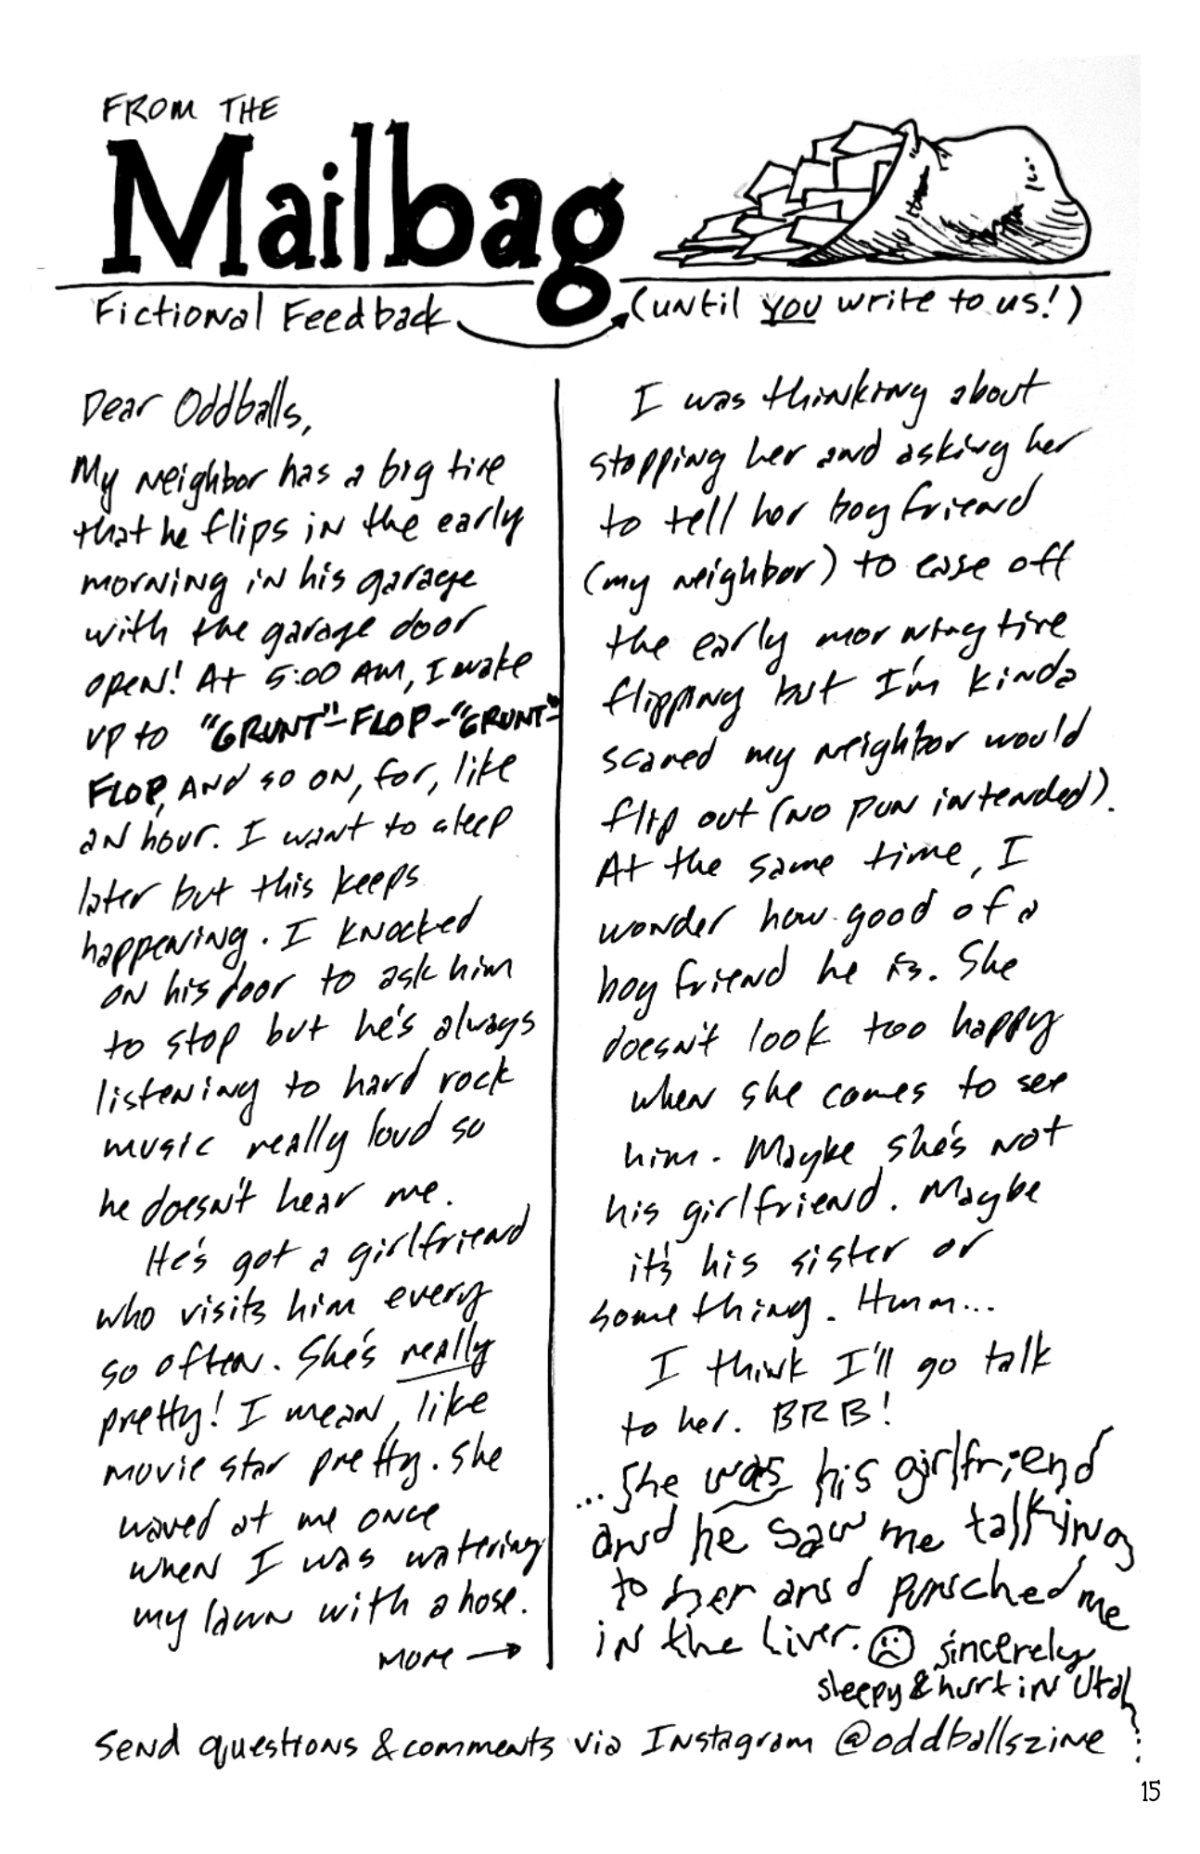 FROM THE
Mailbag
Fictional Feedback (until you write to us!)
Dear Oddballs,
My neighbor has a big tire
that he flips in the early
morning in his garage
with the garage door
open! At 5:00 AM, I wake
up to "GRUNT"-FLOP-"GRUNT"-
FLOP, AND so on, for, like
an hour. I want to sleep
later but this keeps
happening. I knocked
on his door to ask him
to stop but he's always
listening to hard rock
music really loud so
he doesn't hear me.
He's got a girlfriend
who visits him every
so often. She's really
pretty! I mean, like
movie star pretty. She
waved at me once
when I was watering
my lawn with a hose.
more →
I was thinking about
stopping her and asking her
to tell her boyfriend
(my neighbor) to ease off
the early morning tire
flipping but I'm kinda
scared my neighbor would
flip out (no pun intended).
At the same time, I
wonder how good of a
boyfriend he is. She
doesn't look too happy
when she comes to see
him. Maybe she's not
his girlfriend. Maybe
it's his sister or
something. Hmm...
I think I'll go talk
to her. BRB!
...She was his girlfriend
and he saw me talking
to her and punched me
in the liver. sincerely
sleepy & hurt in Utah
Send questions & comments via Instagram @oddballszine
15